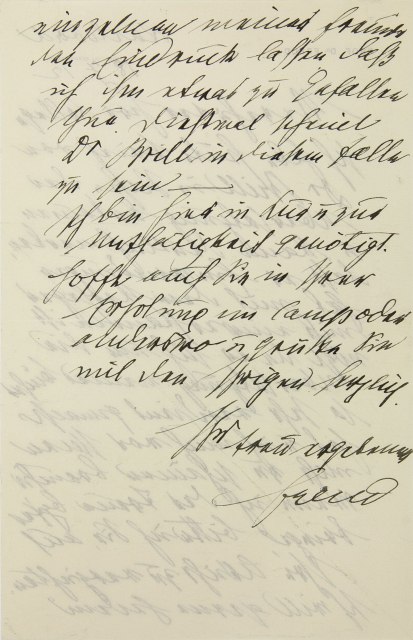 einzelnen meiner Freunde
den Eindruck lassen daß
ich ihm etwas zu Gefallen
thue. Diesmal scheint
Dr Brill in diesem Falle
zu sein —
Ich bin hier in Kur u zur
Unthätigkeit genötigt.
Hoffe auch Sie in Ihrer
Erholung im Camp oder
anderswo u grüße Sie
mit den Ihrigen herzlich
Ihr
treu ergebener
Freud